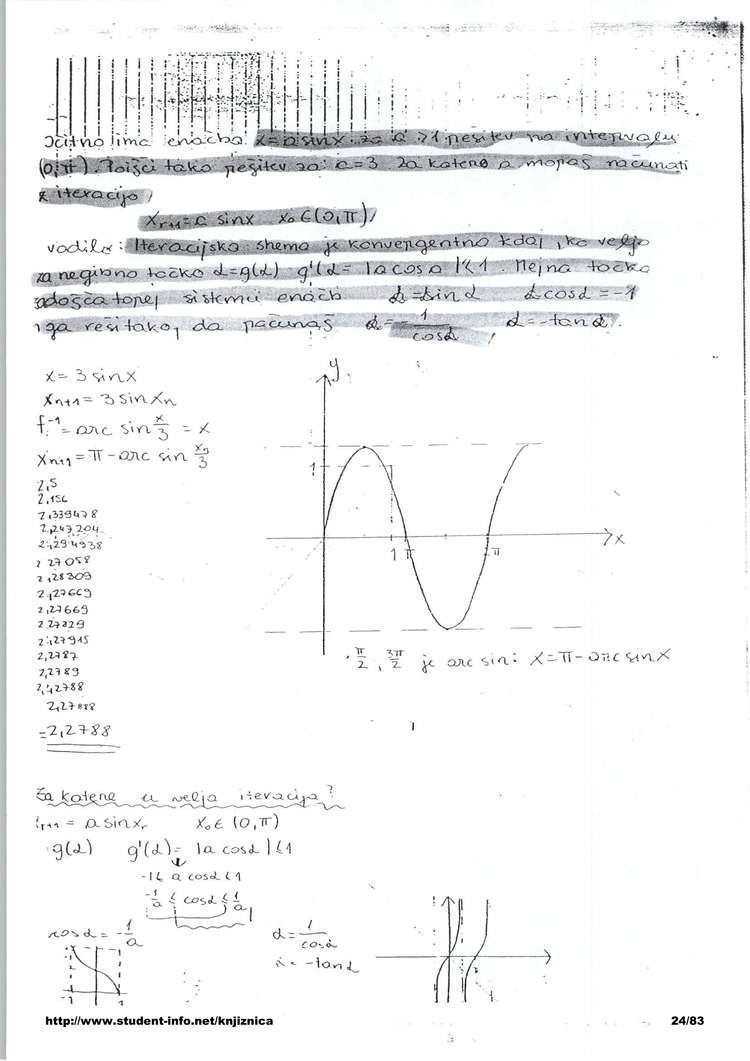 Očitno ima enačba x=a sinx za a >1 rešitev na intervalu
(0,π). Poišči tako rešitev za a=3. Za katero a moraš računati
z iteracijo,
Xr+1=a sinx x₀∈(0,π),
vodilo: Iteracijska shema je konvergentna kdaj, ko velja
za negibno točko α=g(α) g'(α= |a cosα|<1. Mejna točka
zadošča torej sistemu enačb α=sinα α cosα=-1
ga reši tako, da računaš α=-1/cosα, α=-tanα.
x= 3 sinx
xn+1= 3 sinxn
f⁻¹= arc sin x/3 = x
xn+1=π-arc sin xn/3
2,5
2,156
2,339478
2,247204
2,294938
2,27058
2,28309
2,27669
2,27669
2,27829
2,27915
2,2787
2,2789
2,2788
2,27888
=2,2788
y
1
1 π
π
x
π/2, 3π/2 je arc sin: x=π-arc sinx
Za katere a velja iteracija?
r+1 = a sinxr x₀∈(0,π)
g(α) g'(α)= |a cosα|<1
-1< a cosα<1
-1/a < cosα < 1/a
cosα=-1/a
α=1/cosα
α=-tanα
-1 1
http://www.student-info.net/knjiznica
24/83